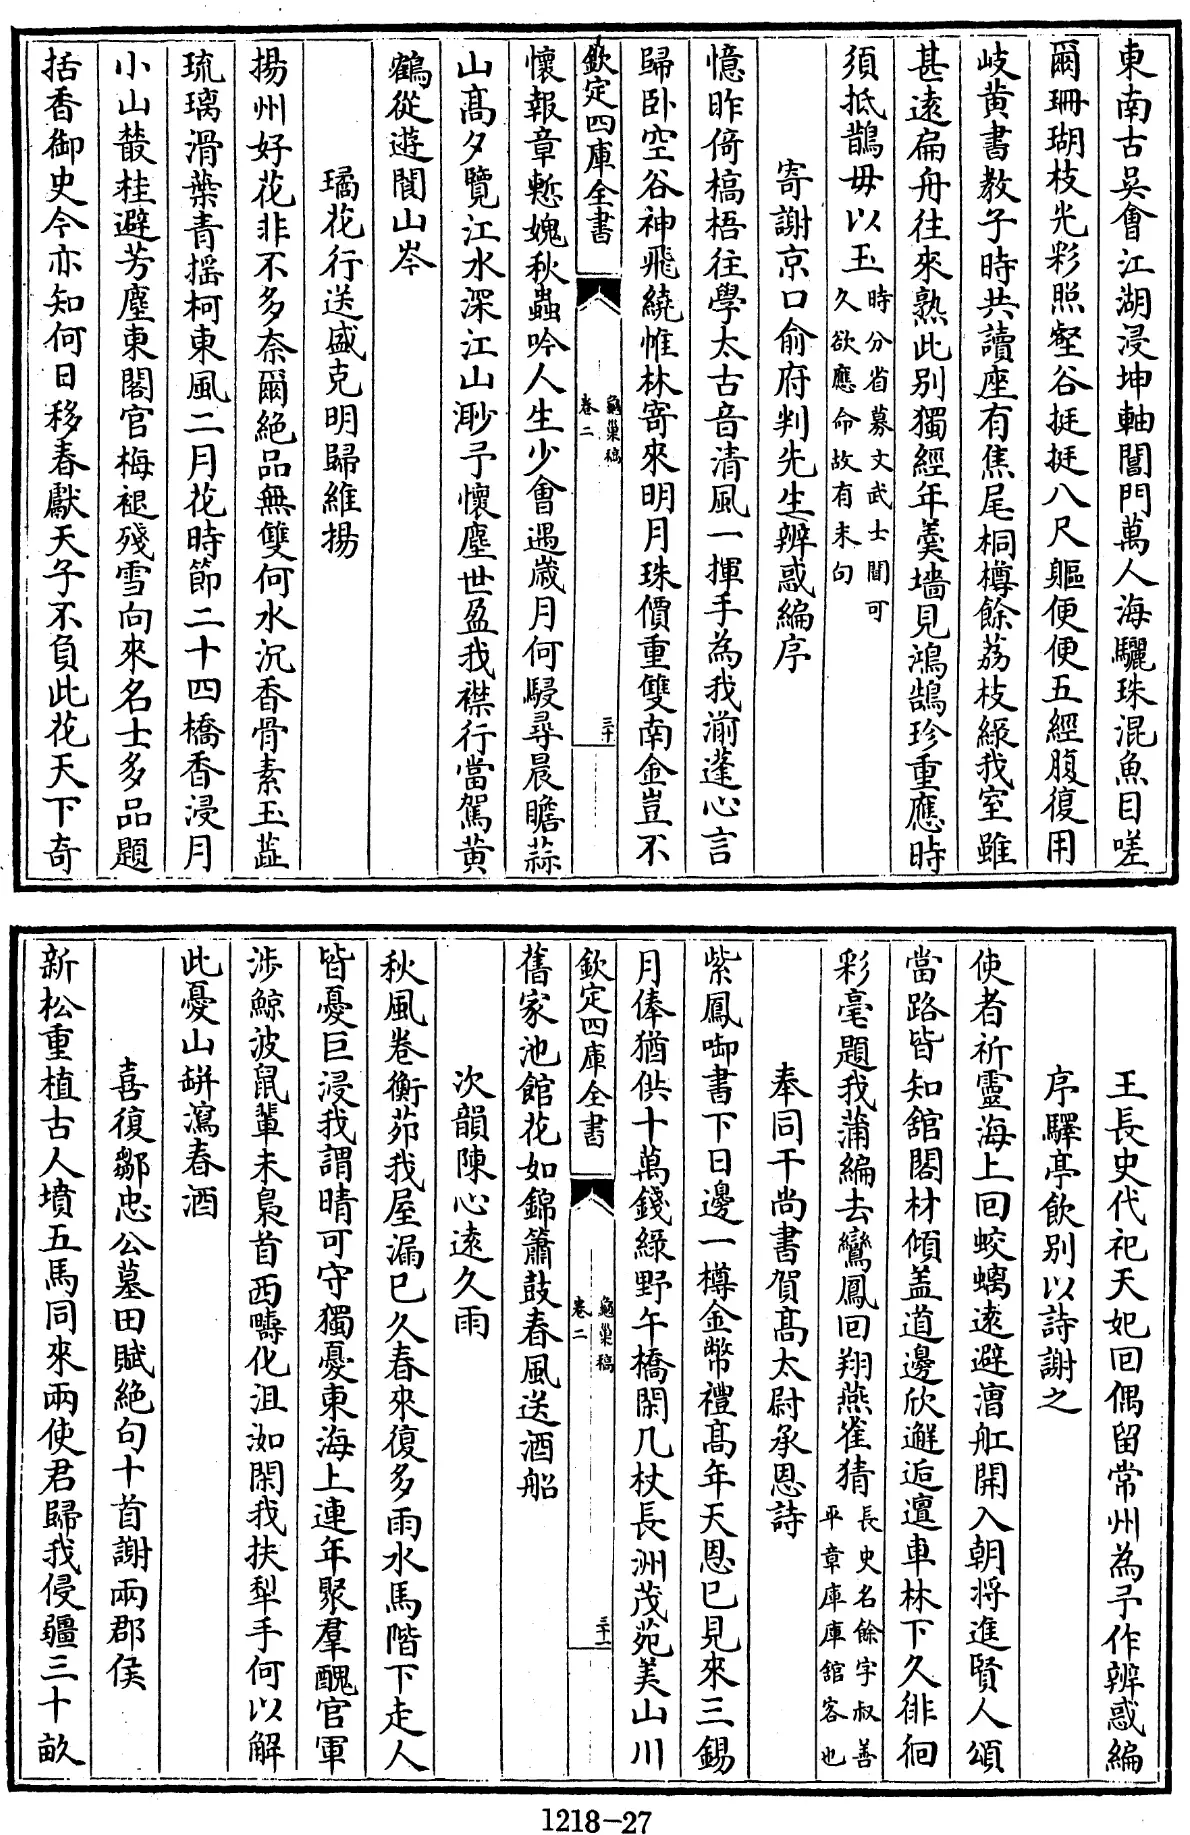 東南古吳會江湖浸坤軸閶門萬人海驪珠混魚目嗟
爾珊瑚枝光彩照壑谷挺挺八尺軀便便五經腹復用
岐黄書教子時共讀座有焦尾桐樽餘荔枝綠我室雖
甚逺扁舟往來熟此别獨經年羮墻見鴻鵠珍重應時
須抵鵲毋以玉時分省募文武士閭可
久欲應命故有末句
寄謝京口俞府判先生辨惑編序
憶昨倚槁梧往學太古音清風一揮手為我湔蓬心言
歸卧空谷神飛繞帷林寄來明月珠價重雙南金豈不
欽定四庫全書
龜巢稿
卷二
三十
懷報章慙媿秋蟲吟人生少會遇嵗月何駸尋晨瞻蒜
山髙夕覽江水深江山渺予懷塵世盈我襟行當駕黄
鶴從遊閬山岑
璚花行送盛克明歸維揚
揚州好花非不多奈爾絶品無雙何水沉香骨素玉蕋
琉璃滑葉青揺柯東風二月花時節二十四橋香浸月
小山叢桂避芳塵東閣官梅褪殘雪向來名士多品題
括香御史今亦知何日移春獻天子不負此花天下奇
王長史代祀天妃回偶留常州為予作辨惑編
序驛亭飲别以詩謝之
使者祈靈海上回蛟螭逺避漕舡開入朝將進賢人頌
當路皆知舘閣材傾盖道邊欣邂逅邅車林下久徘徊
彩毫題我蒲編去鸞鳳回翔燕雀猜長史名餘字叔善
平章庫庫舘客也
奉同干尚書賀髙太尉承恩詩
紫鳳啣書下日邊一樽金幣禮髙年天恩已見來三錫
月俸猶供十萬錢綠野午橋閑几杖長洲茂苑美山川
欽定四庫全書
龜巢稿
卷二
三十一
舊家池館花如錦簫鼓春風送酒船
次韻陳心逺久雨
秋風卷衡茆我屋漏已久春來復多雨水馬階下走人
皆憂巨浸我謂晴可守獨憂東海上連年聚羣醜官軍
渉鯨波鼠輩未梟首西疇化沮洳閑我扶犂手何以解
此憂山缾瀉春酒
喜復鄒忠公墓田賦絶句十首謝兩郡侯
新松重植古人墳五馬同來兩使君歸我侵疆三十畝
1218-27